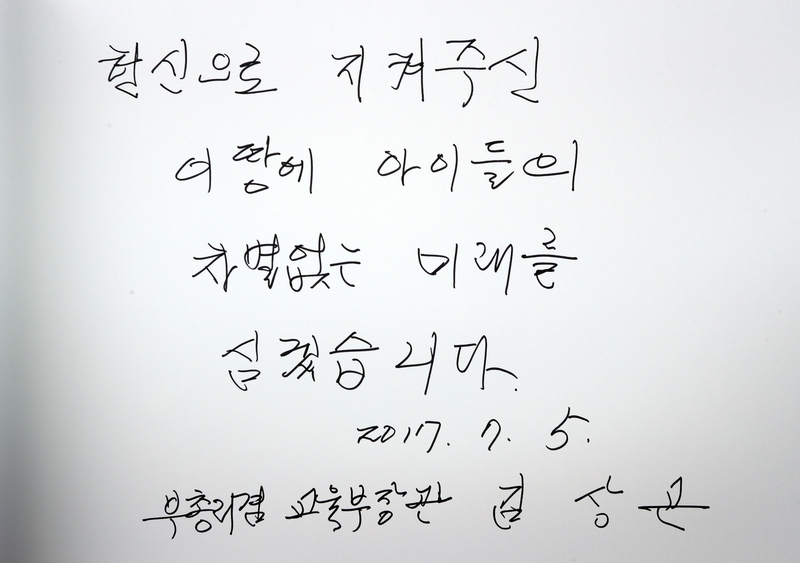 헌신으로 지켜주신
이 땅에 아이들의
차별없는 미래를
심겠습니다.
2017. 7. 5.
부총리겸 교육부장관 김 상 곤